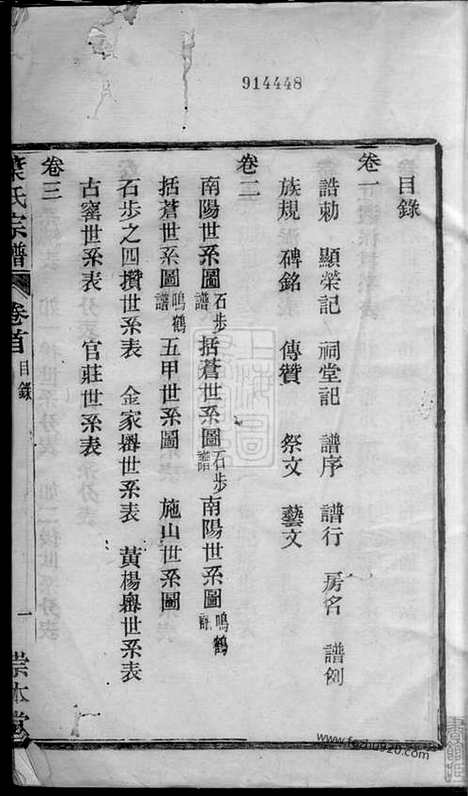 914448
目錄
卷一
誥勅 顯榮記 祠堂記 譜序 譜行 房名 譜例
族規 碑銘 傳贊 祭文 藝文
卷二
南陽世系圖石步譜 括蒼世系圖石步譜 南陽世系圖鳴鶴譜
括蒼世系圖鳴鶴譜 五甲世系圖 施山世系圖
石步之四攢世系表 金家嶴世系表 黃楊嶴世系表
古窰世系表 官莊世系表
卷三
葉氏宗譜 卷首 目錄 一 崇本堂
www.fozhu920.com